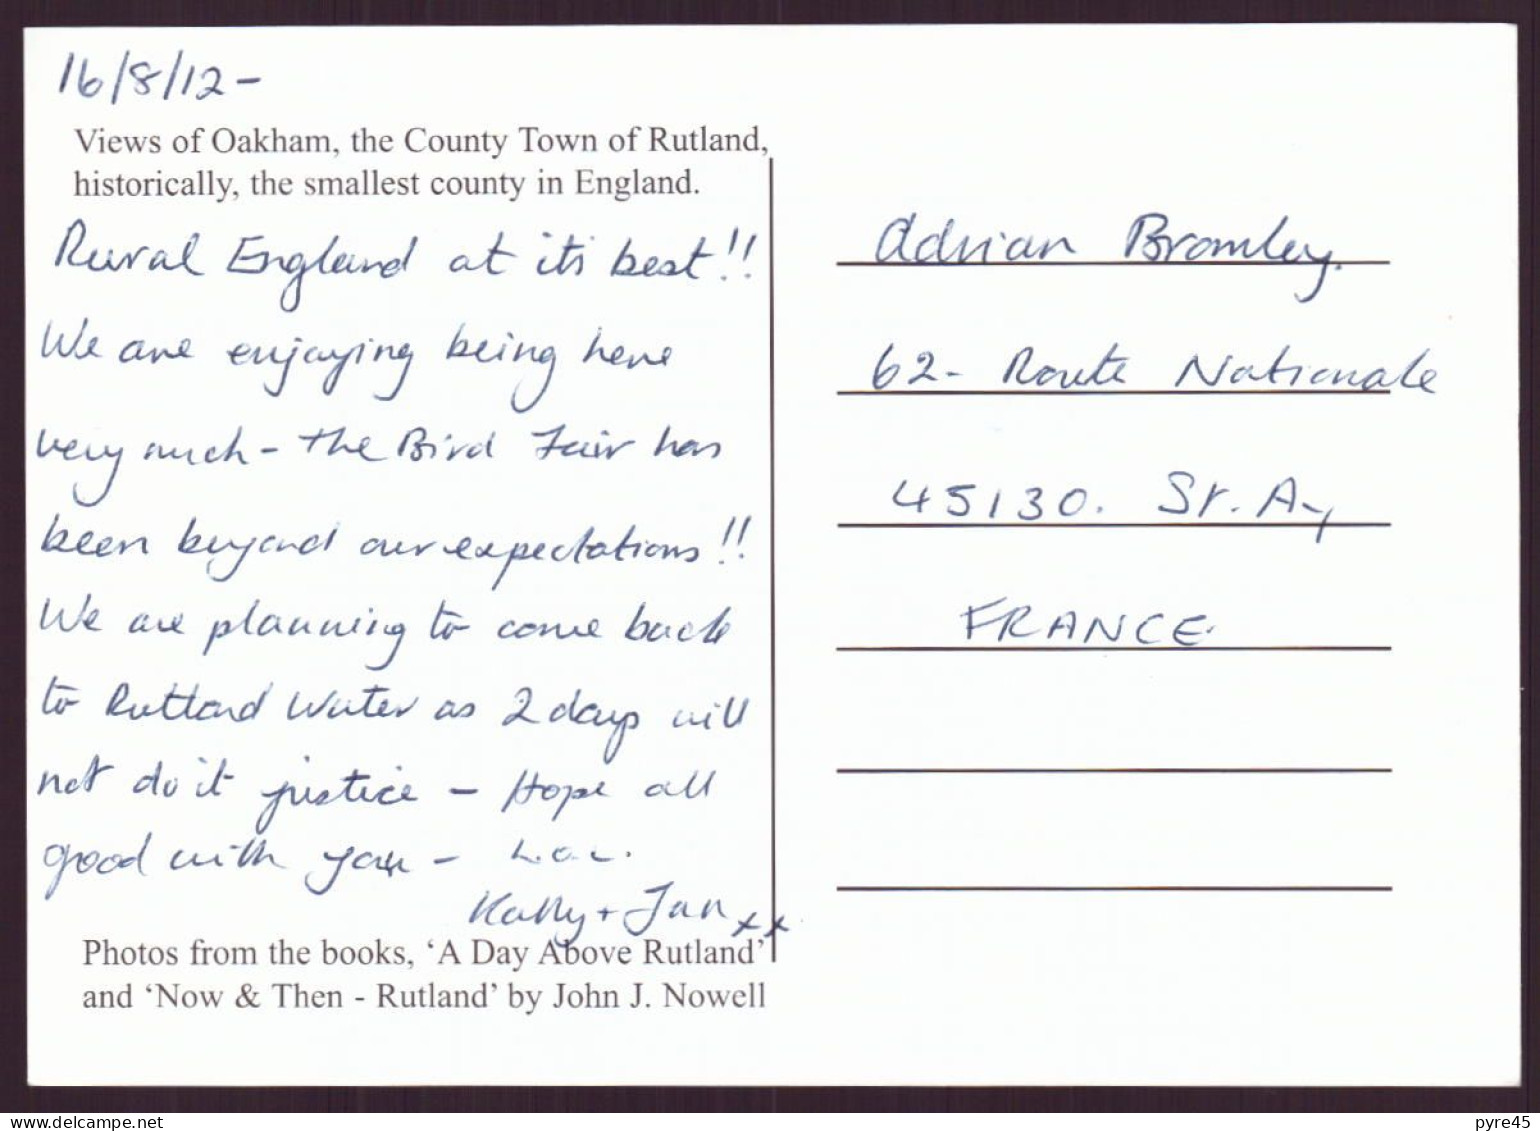 16/8/12-
Views of Oakham, the County Town of Rutland,
historically, the smallest county in England.
Rural England at it's best!!
We are enjoying being here
very much - the Bird Fair has
been beyond our expectations!!
We are planning to come back
to Rutland Water as 2 days will
not do it justice - Hope all
good with you -
Kathy + Jan xx
Photos from the books, ‘A Day Above Rutland’
and ‘Now & Then - Rutland’ by John J. Nowell
Adrian Bromley.
62- Route Nationale
45130. St. Ay
FRANCE.
delcampe.net
pyre45